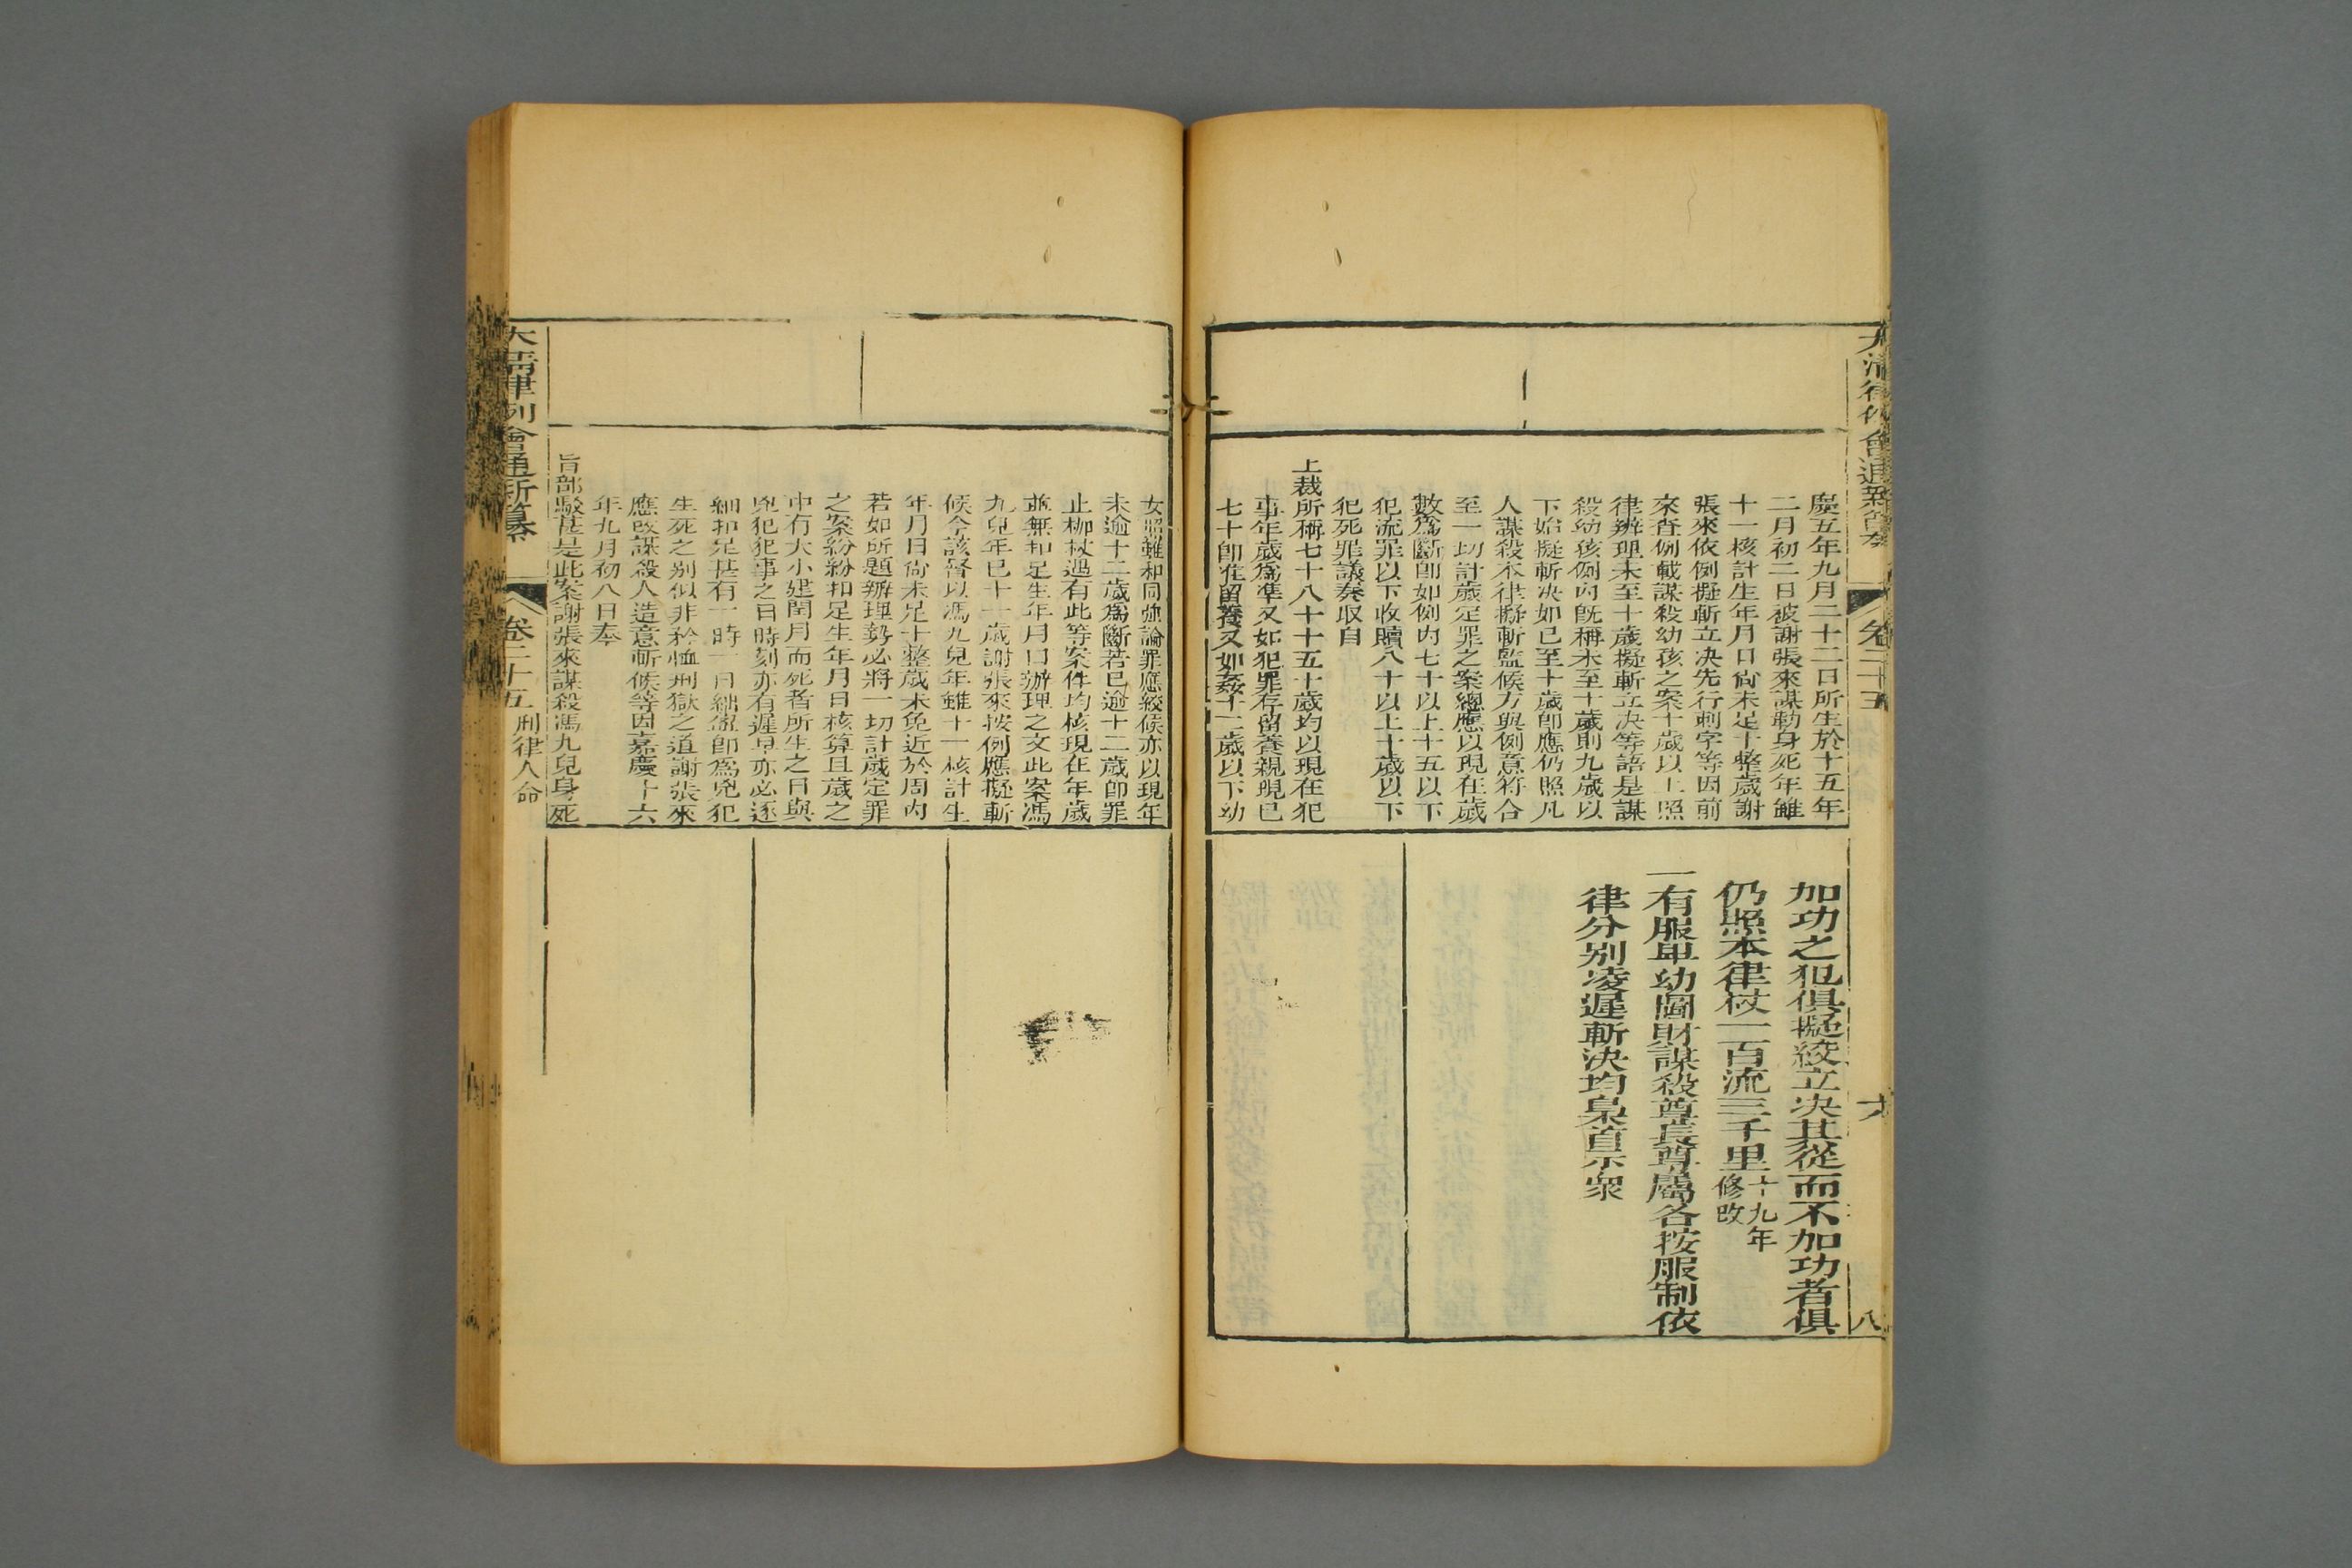 慶五年九月二十二日所生於十五年
二月初二日被謝張來謀勒身死年雖
十一核計生年月日尙未足十整歲謝
張來依例擬斬立決先行刺字等因前
來查例載謀殺幼孩之案十歲以上照
律辨理未至十歲擬斬立決等語是謀
殺幼孩例內旣稱未至十歲則九歲以
下始擬斬決如已至十歲卽應仍照凡
人謀殺本律擬斬監候方與例意符合
至一切計歲定罪之案總應以現在歲
數爲斷卽如例內七十以上十五以下
犯流罪以下收贖八十以上十歲以下
犯死罪議奏取自
上裁所稱七十八十十五十歲均以現在犯
事年歲爲準又如犯罪存留養親現已
七十卽准留養又如姦十二歲以下幼
加功之犯俱擬絞立決其從而不加功者俱
仍照本律杖一百流三千里十九年修改
一有服卑幼圖財謀殺尊長尊屬各按服制依
律分別凌遲斬決均梟首示眾
女照雖和同強論罪應絞候亦以現年
未逾十二歲爲斷若已逾十二歲卽罪
止枷杖遇有此等案件均核現在年歲
並無扣足生年月日辦理之文此案馮
九兒年已十一歲謝張來按例應擬斬
候今該督以馮九兒年雖十一核計生
年月日尙未足十整歲未免近於周內
若如所題辦理勢必將一切計歲定罪
之案紛紛扣足生年月日核算且歲之
中有大小建閏月而死者所生之日與
兇犯犯事之日時刻亦有遲早亦必逐
細扣足甚有一時一日絀盈卽爲兇犯
生死之別似非矜恤刑獄之道謝張來
應改謀殺人造意斬候等因嘉慶十六
年九月初八日奉
旨部駁甚是此案謝張來謀殺馮九兒身死
大清律例會通新纂 卷二十五 刑律人命